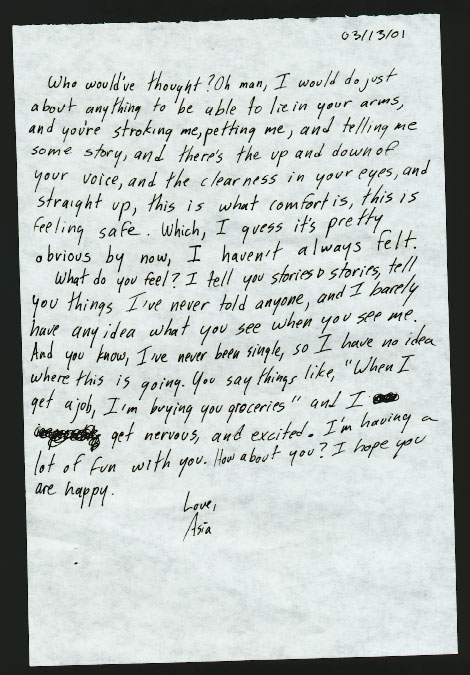 03/13/01
Who would've thought? Oh man, I would do just
about anything to be able to lie in your arms,
and you're stroking me, petting me, and telling me
some story, and there's the up and down of
your voice, and the clearness in your eyes, and
straight up, this is what comfort is, this is
feeling safe. Which, I guess it's pretty
obvious by now, I haven't always felt.
What do you feel? I tell you stories stories, tell
you things I've never told anyone, and I barely
have any idea what you see when you see me.
And you know, I've never been single, so I have no idea
where this is going. You say things like, "When I
get a job, I'm buying you groceries" and I
get nervous, and excited. I'm having a
lot of fun with you. How about you? I hope you
are happy.
Love,
Asia